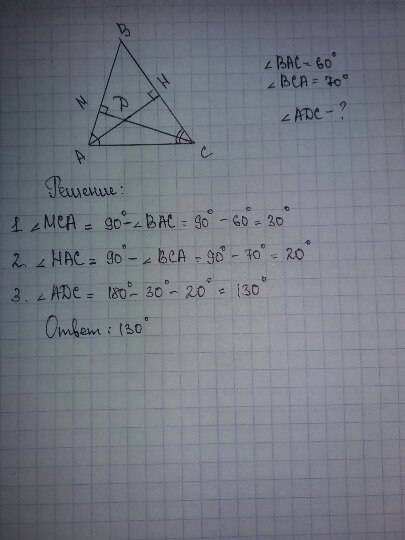 B
∠BAC = 60°
∠BCA = 70°
∠ADC - ?
N
D
H
A
C
Решение:
1. ∠MCA = 90° - ∠BAC = 90° - 60° = 30°
2. ∠HAC = 90° - ∠BCA = 90° - 70° = 20°
3. ∠ADC = 180° - 30° - 20° = 130°
Ответ: 130°